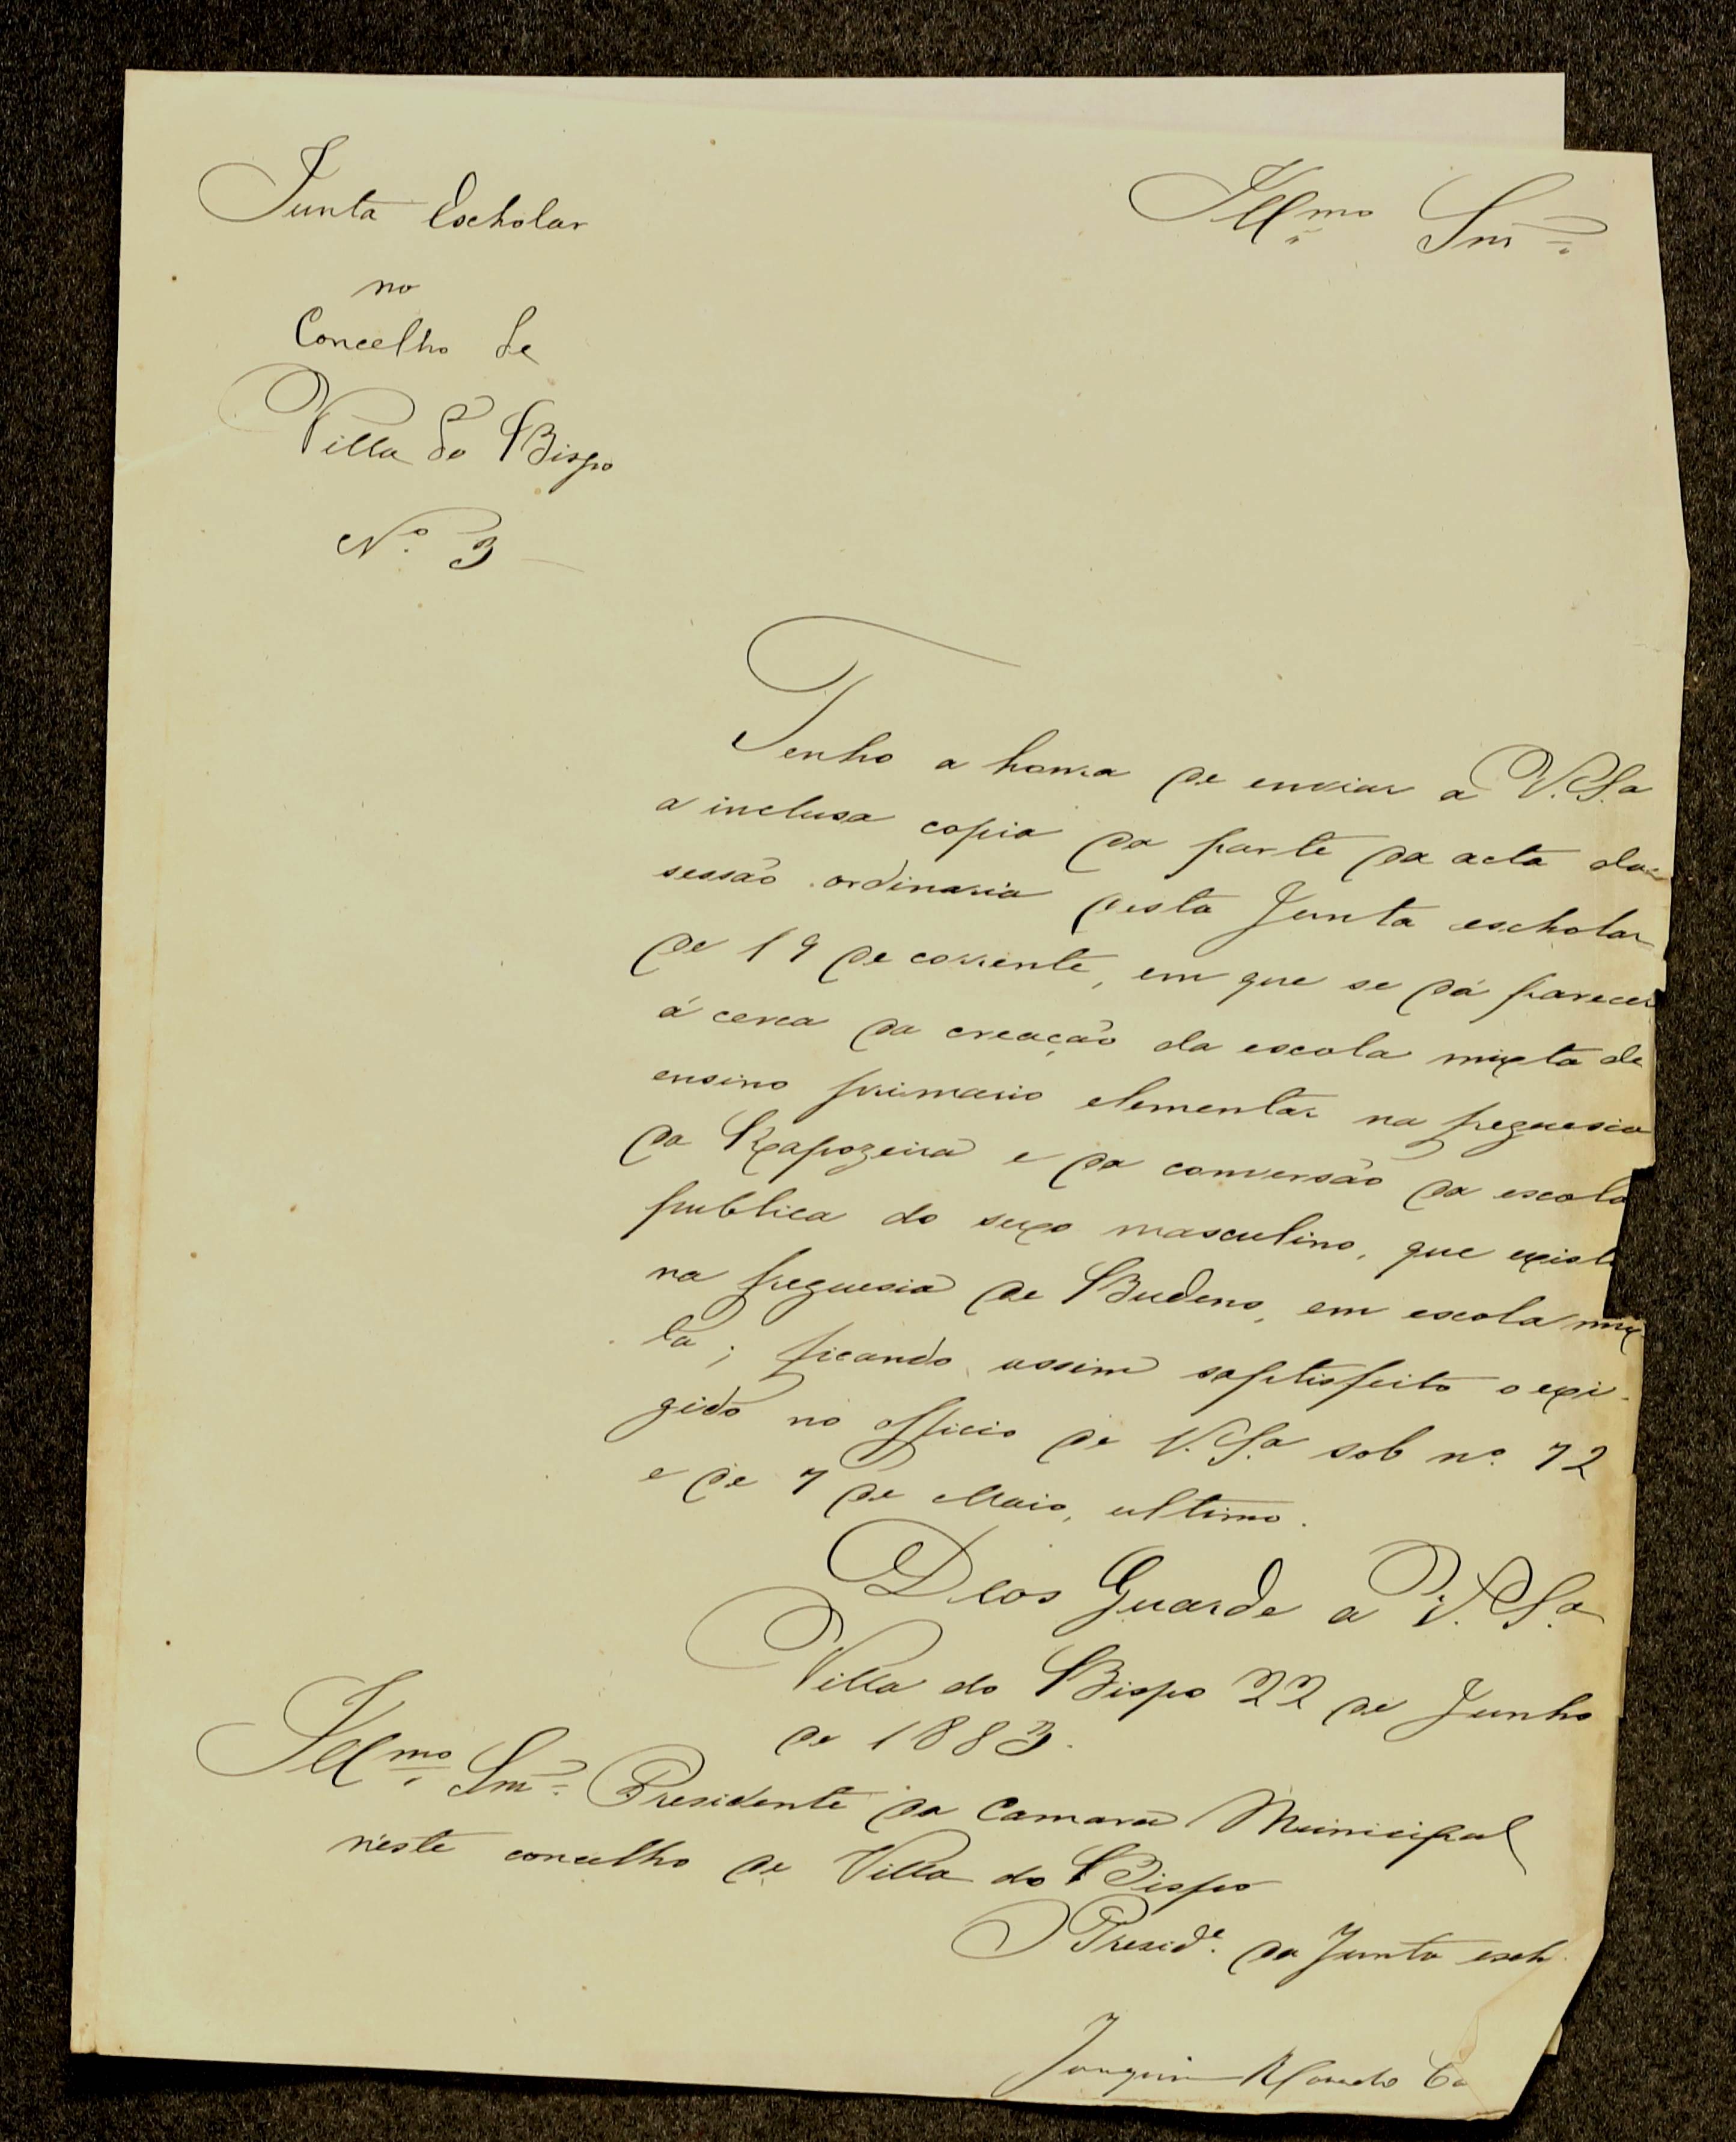 Junta Escholar
no
Concelho de
Villa do Bispo
Nº 3
Illmo Snr
Tenho a honra de enviar a V. Sa
a inclusa copia da parte da acta da
sessão ordinaria desta Junta escholar
de 19 de corrente, em que se dá parecer
á cerca da creação da escola mixta de
ensino primario elementar na freguesia
da Rapozeira e da conversão da escola
publica do sexo masculino, que existe
na freguesia de Budens, em escola mix
ta; ficando assim saptisfeito o exi-
gido no officio de V. Sa sob nº 72
e de 7 de Maio, ultimo.
Deos Guarde a V. Sa
Villa do Bispo 22 de Junho
de 1883.
Illmo Snr Presidente da Camara Municipal
n'este concelho de Villa do Bispo
O Preside. da Junta esch.
Joaquim